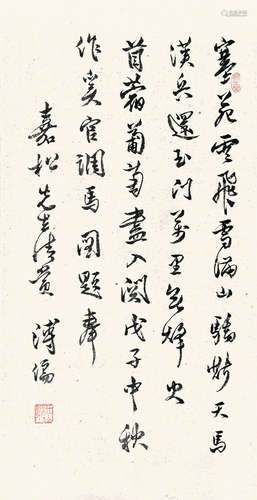 塞苑雲飛雪滿山驕嘶天馬
漢兵還玉門萬里無烽火
苜蓿葡萄盡入關戊子中秋
作奚官調馬圖題奉
嘉松先生清賞 溥儒